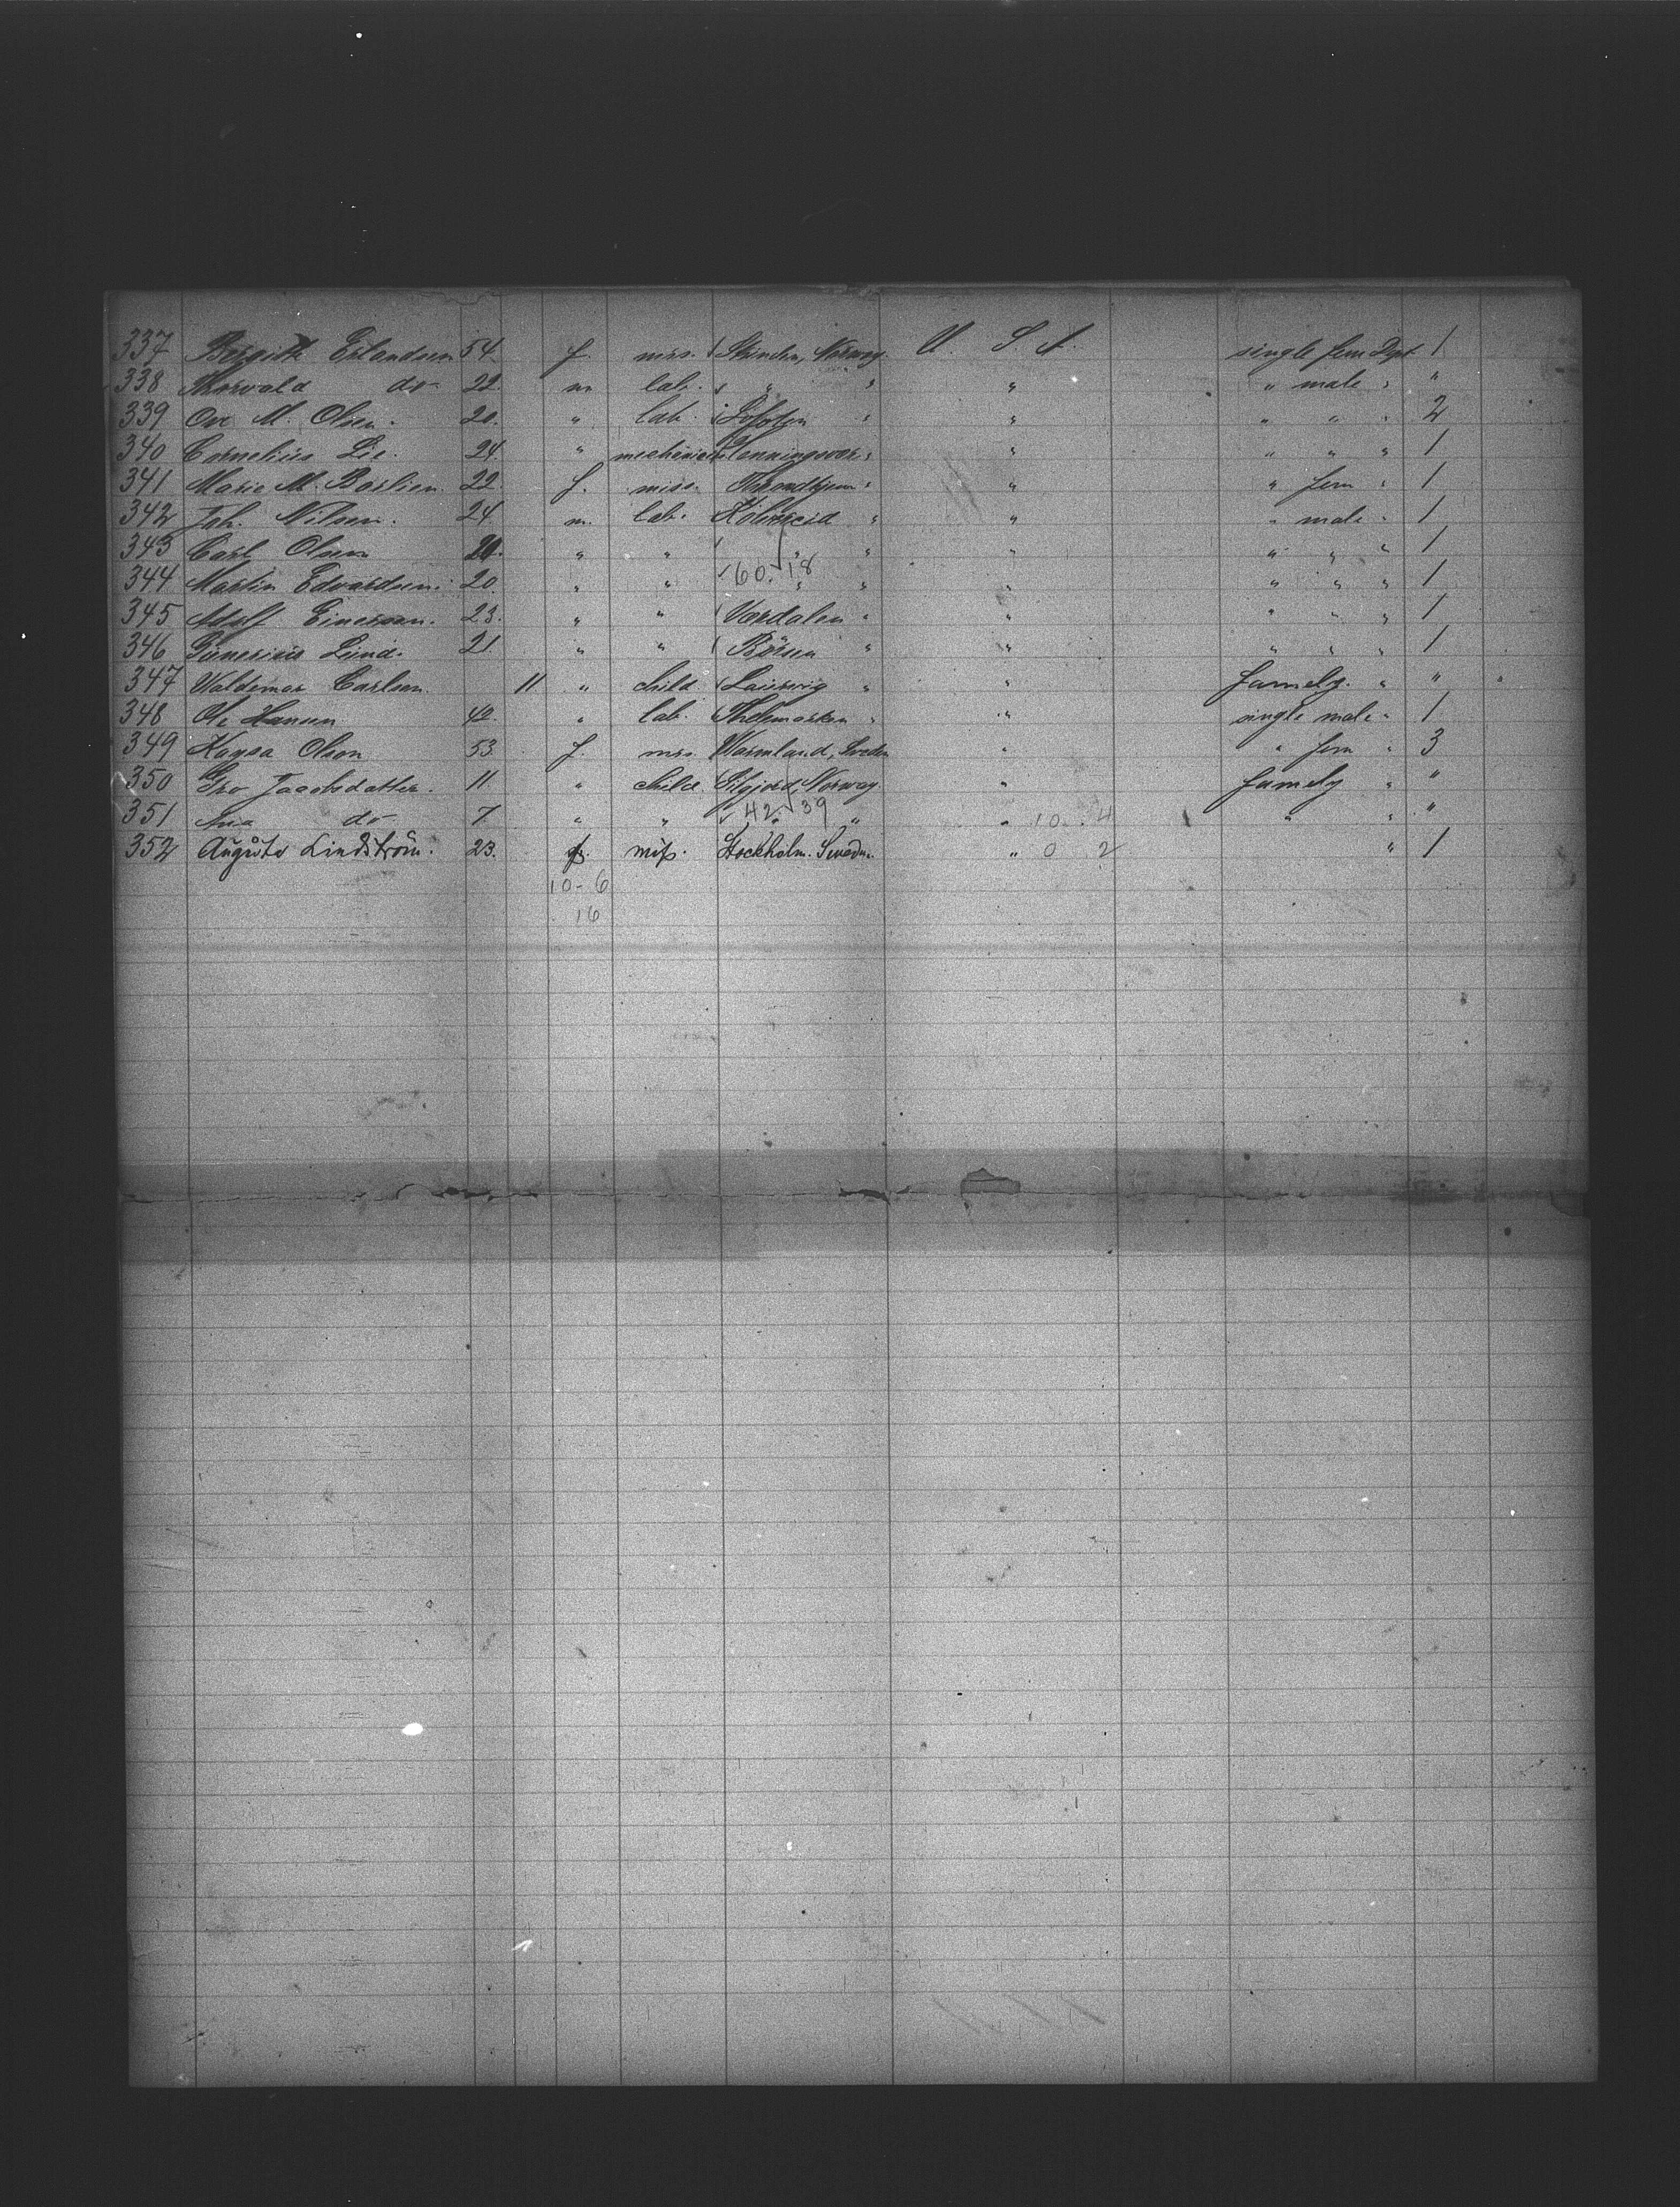 337 Bergith Erlandsen 54. f. mrs. Skinden, Norway. U. S. A. single fem Dpt 1
338 Thorvald do 22. m lab. " " " " male " "
339 Ove M. Olsen. 20. " lab. Lofoten " " " " " 2
340 Cornelius Lie. 24. " mechanic Henningsvær " " " " " 1
341 Marie M. Barlien. 22. f. miss. Throndhjem " " " fem " 1
342 Joh. Nilsen. 24. m. lab. " " " male " 1
343 Carl Olsen " " " " " " " " 1
344 Martin Edvardsen. 20. " " 60 18 " " " " " " 1
345 Adolf Einersen. 23. " " Værdalen " " " " " 1
346 Lund. 21. " " Börsen " " " " " 1
347 Waldemar Carlsen 11 " child Laurvig " " famely. " " "
348 Ole Hansen 42. " lab. Thelemarken " " single male " 1
349 Kaysa Olson 53. f. mrs. Warmland, Sweden " " fem " 3
350 Gro Jacobsdatter. 11. " child. Norway. " famely " "
351 do 7. " " " 42 39 " " 10 4 " " "
352 Augusta Lindström. 23. f. miss. Stockholm. Sweden. " 0 2 " 1
10 - 6
16